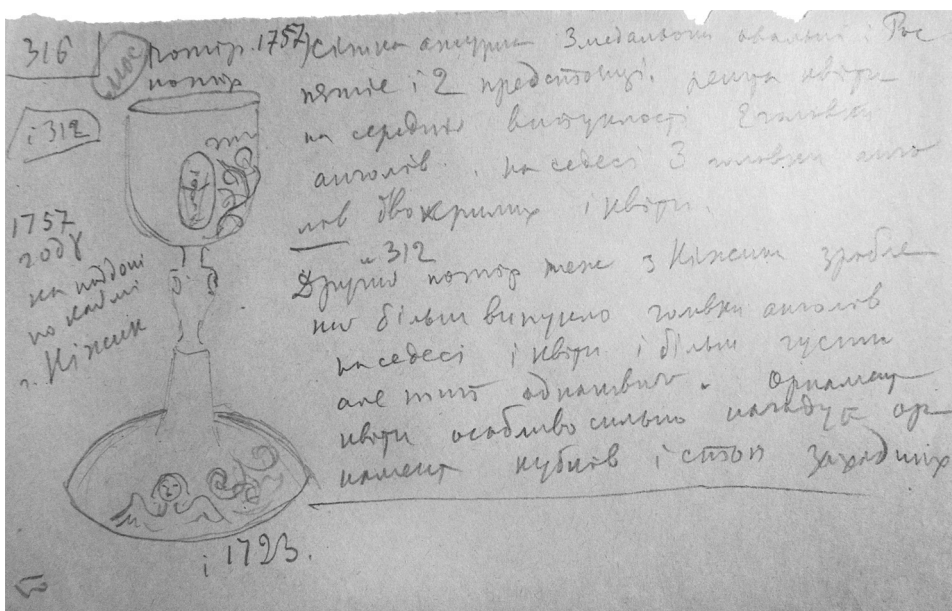 316
потір. 1757)
потір
і 312
1757
году
на піддоні
по каймі
г. Ніжин
Сітка ажурна 3 медальони овальні і Рос
пятіе і 2 предстоящі. решта квіти
на середній випуклості головки
анголів. на седесі 3 головки анго
лів двокрилих і квіти.
312
Другий потір теж з Ніжина зробле
но більш випукло головки анголів
на седесі і квіти і більш густи
але тип однаковий. Орнамент
квіти особливо сильно нагадує ор
намент кубків і стоп західніх
і 1723.